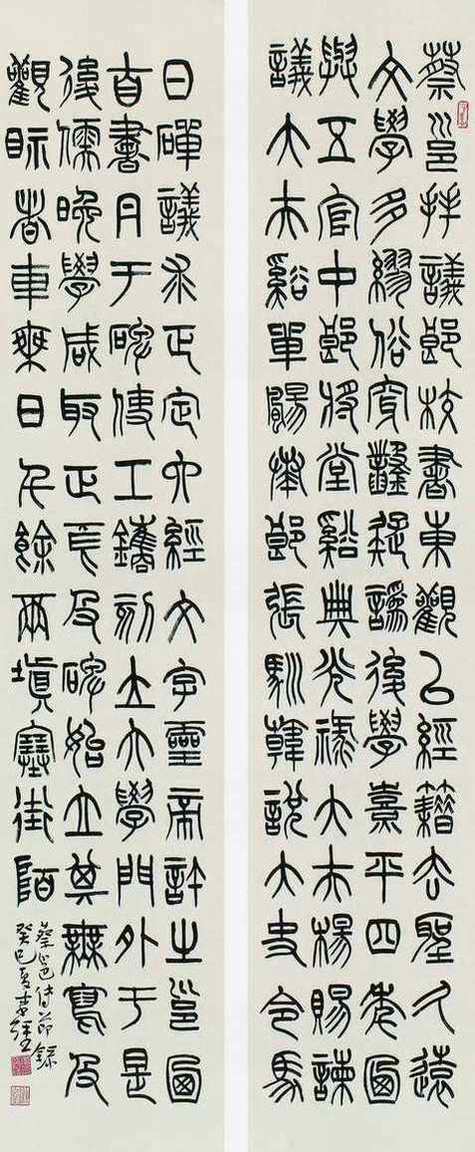 蔡邕拜議郎校書東觀以經籍去聖久遠
文學多繆俗穿鑿疑誤後學熹平四年迺
與五官中郎將堂谿典光祿大夫楊賜諫
議大夫谿單颺郎張馴韓說太史令馬
日磾議求正定六經文字靈帝許之邕迺
自書丹于碑使工鐫刻立太學門外于是
後儒晚學咸取正焉及碑始立其無寫及
觀眎者車乘日千餘兩填塞街陌
蔡邕傳節錄
癸巳夏